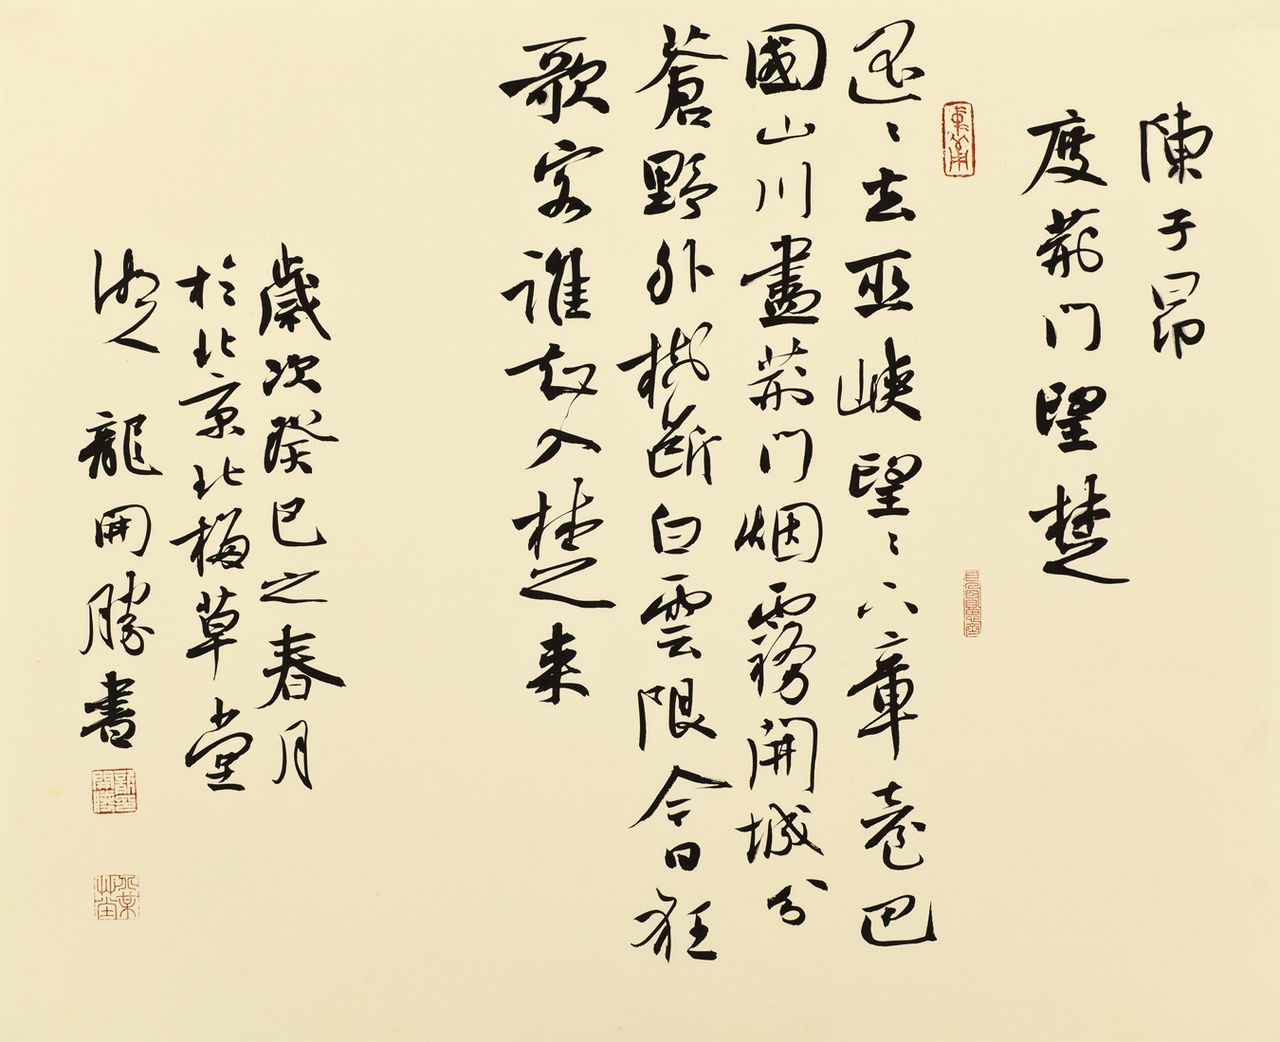 陳子昂
度荆門望楚
遥〻去巫峽望〻下章臺巴
國山川盡荆門烟霧開城分
蒼野外樹斷白雲隈今日狂
歌客誰知入楚来
歲次癸巳之春月
於北京北梅草堂
湘人 龍開勝書